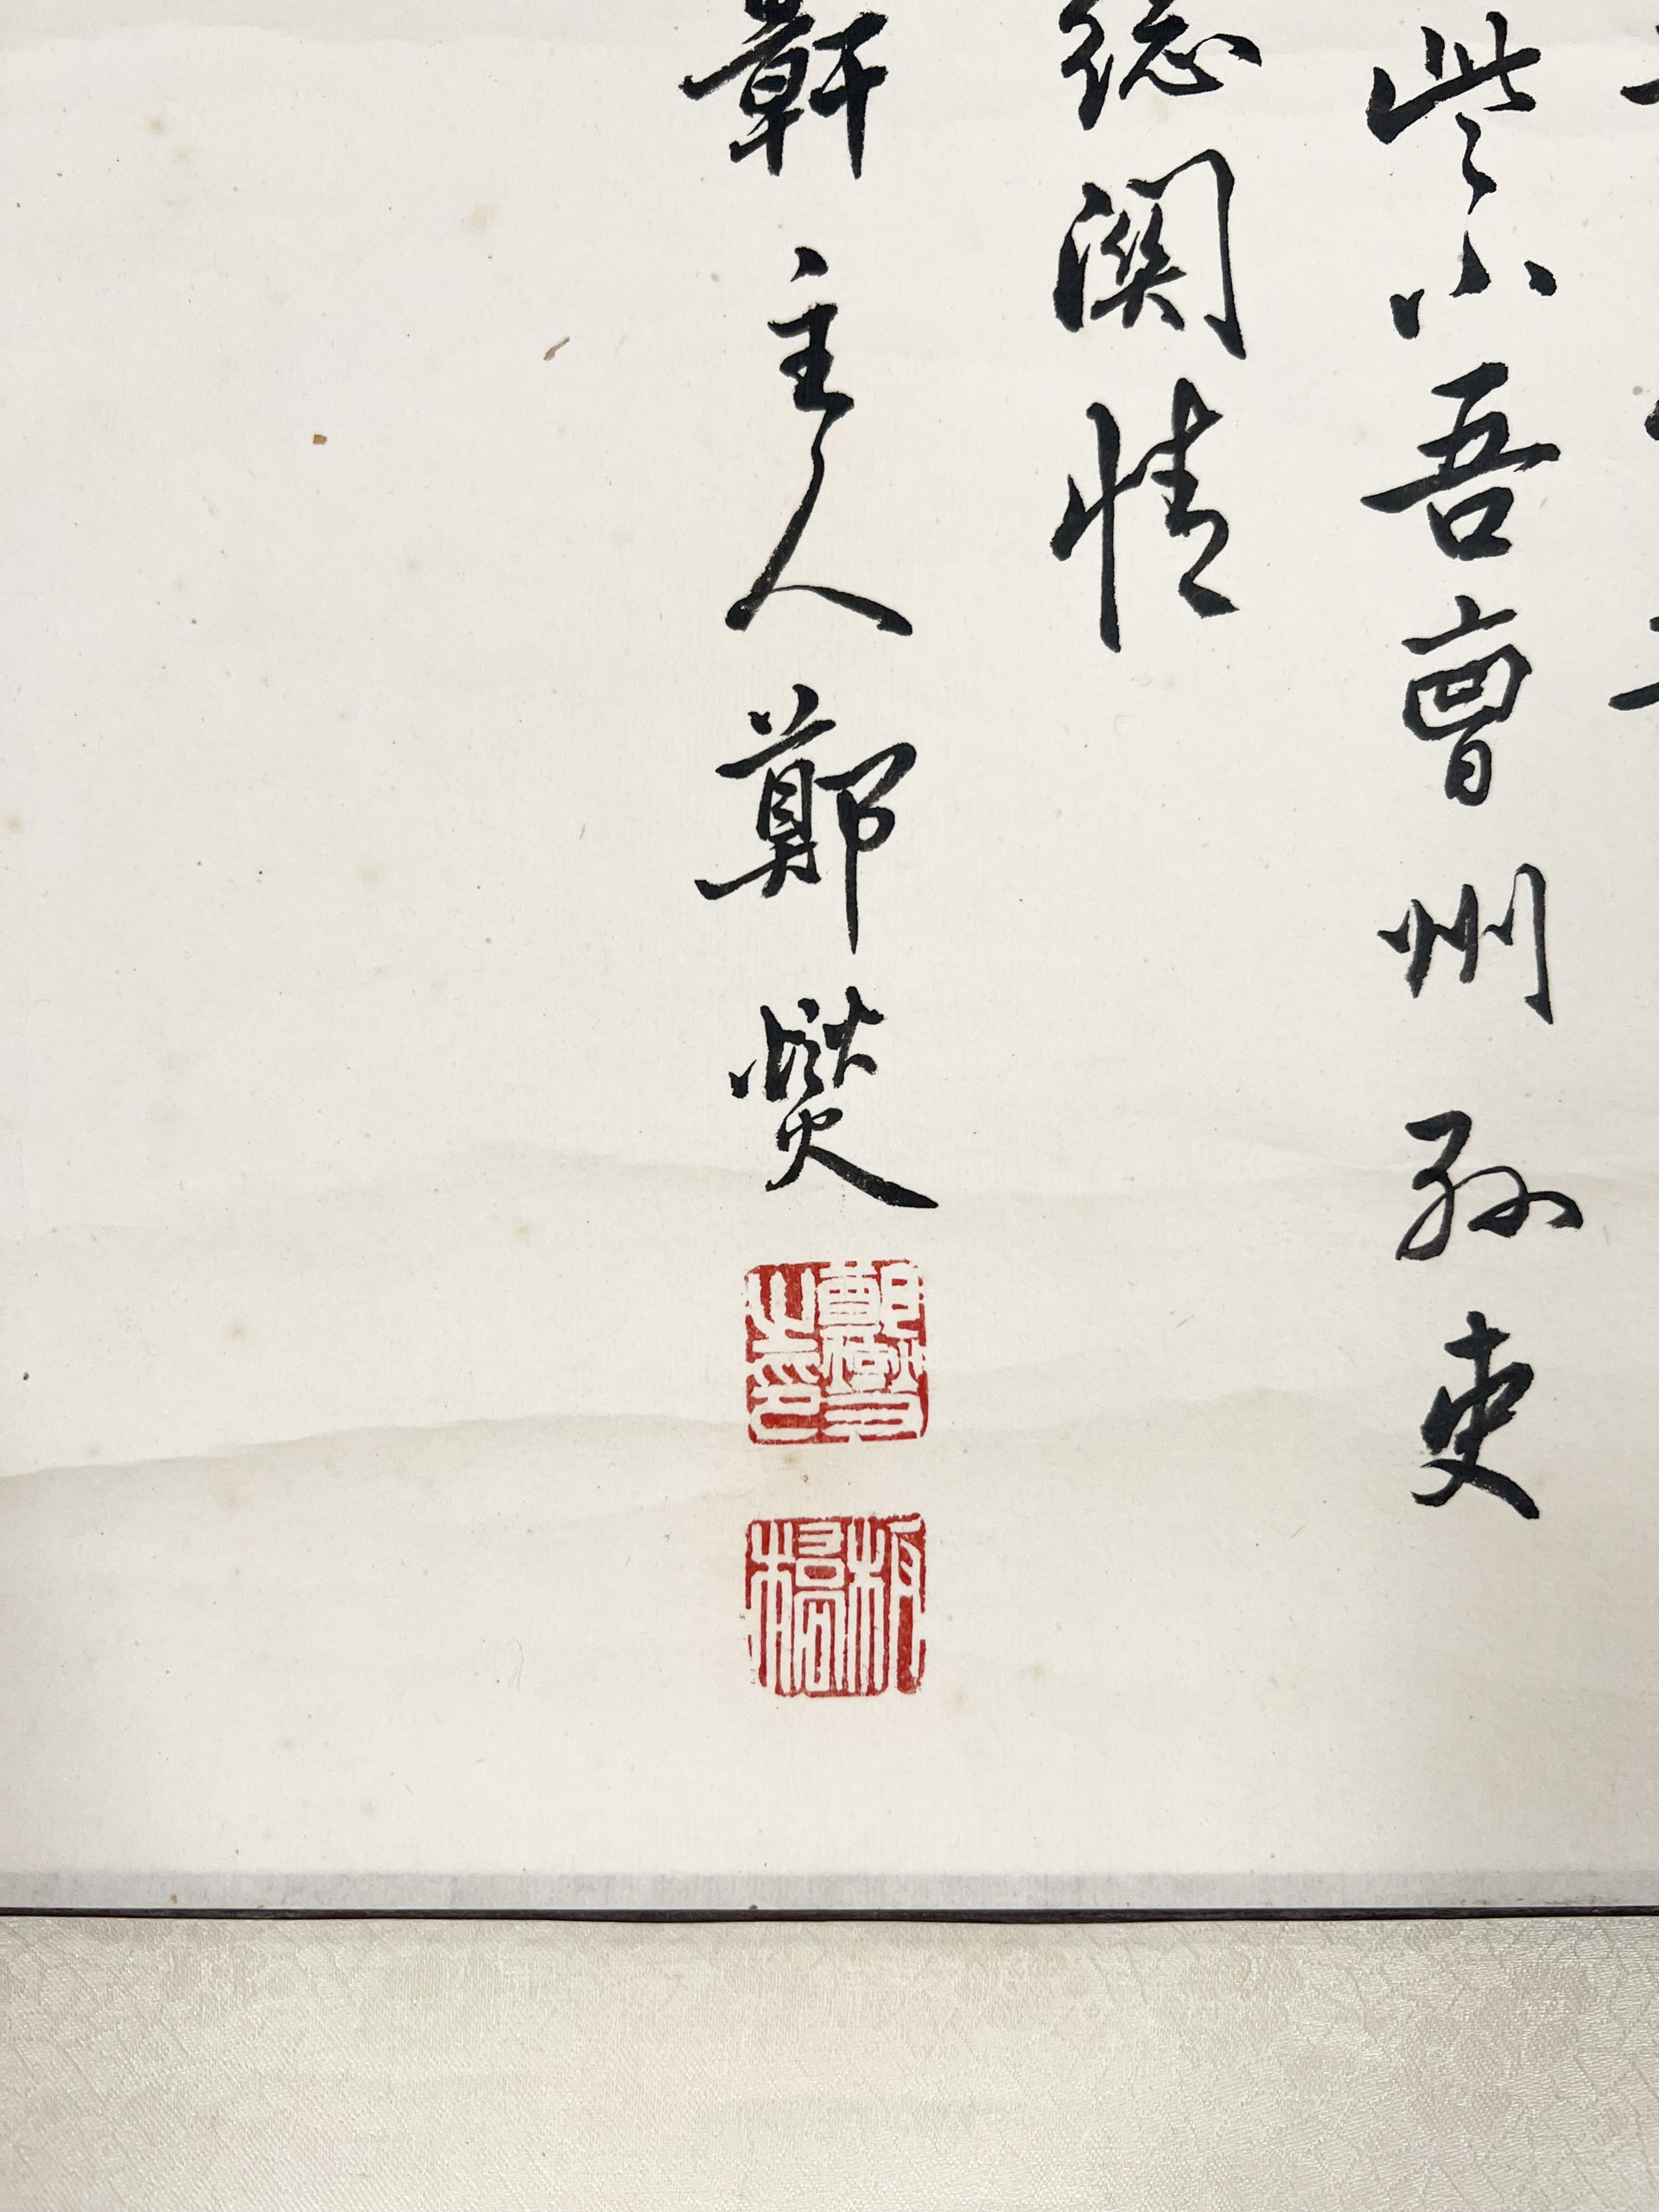 些小吾曹州縣吏
總關情
軒主人鄭燮
鄭燮之印
板橋